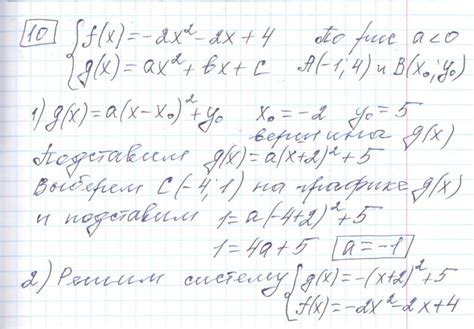 10 { f(x) = -2x² - 2x + 4 По рис a<0
{ g(x) = ax² + bx + c A(-1; 4) и B(x₀; y₀)
1) g(x) = a(x - x₀)² + y₀ x₀ = -2 y₀ = 5
вершина g(x)
Подставим g(x) = a(x+2)² + 5
Выберем C(-4; 1) на графике g(x)
и подставим 1 = a(-4+2)² + 5
1 = 4a + 5 a = -1
2) Решим систему { g(x) = -(x+2)² + 5
{ f(x) = -2x² - 2x + 4